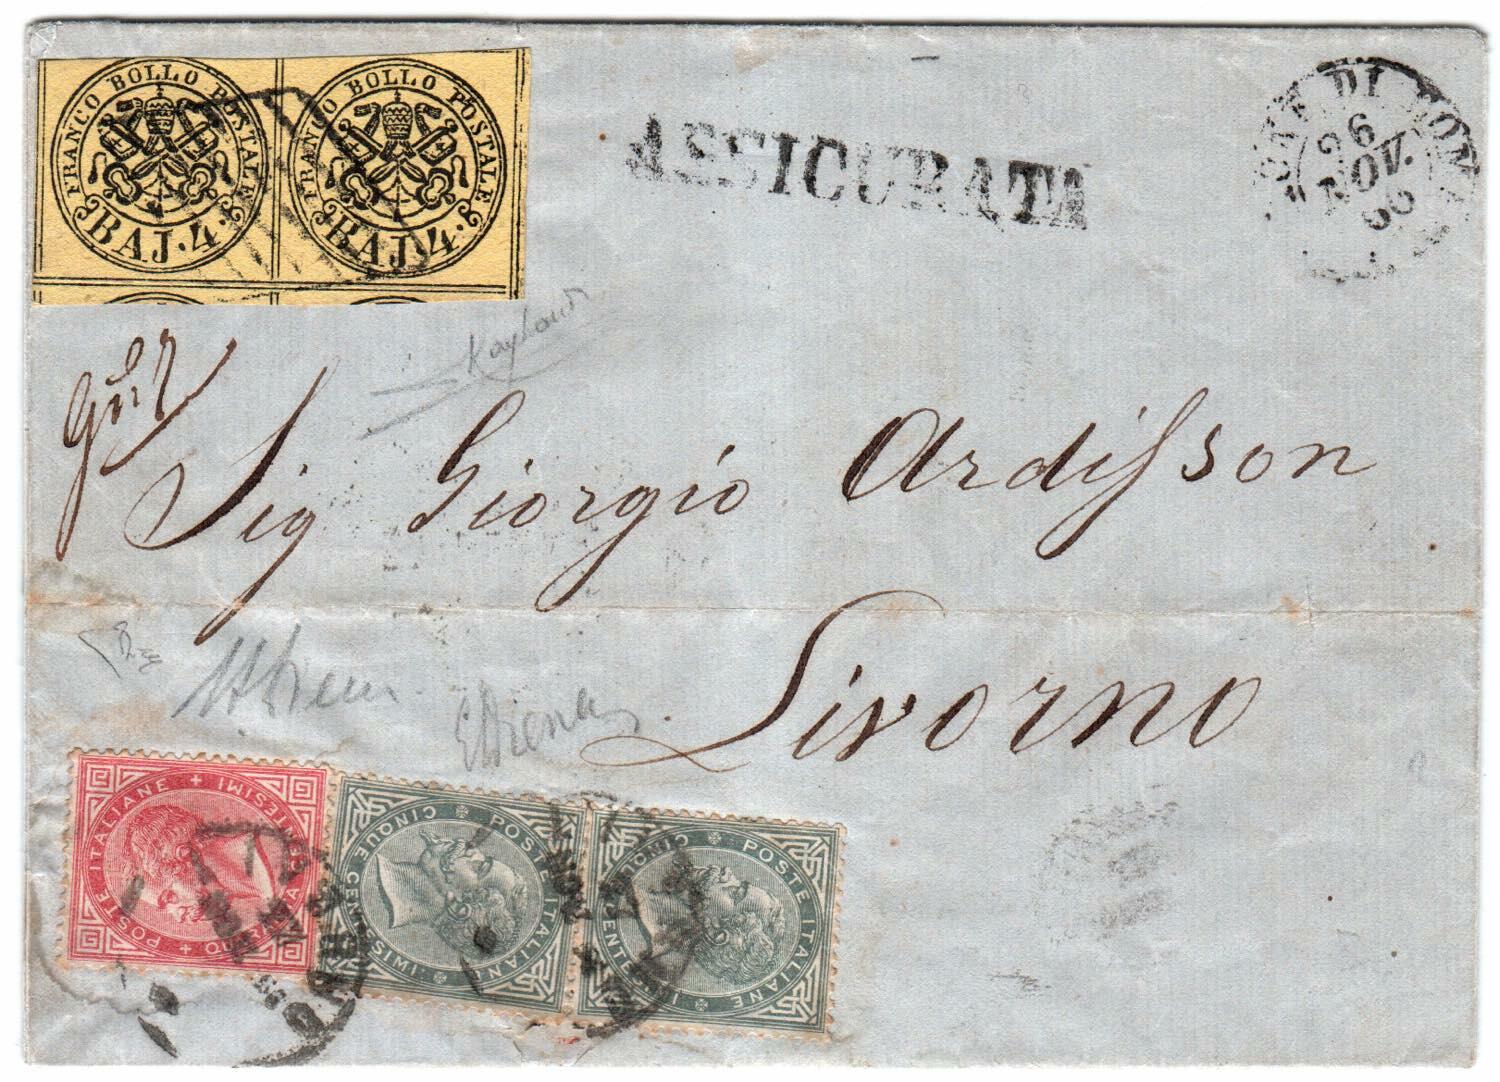 FRANCO BOLLO POSTALE
BAJ. 4.
FRANCO BOLLO POSTALE
BAJ. 4.
ASSICURATA
DI ROMA
26
NOV.
66
Sig Giorgio Ardisson
Livorno
POSTE ITALIANE + QUARANTA CENTESIMI +
POSTE ITALIANE CINQUE CENTESIMI
POSTE ITALIANE CINQUE CENTESIMI